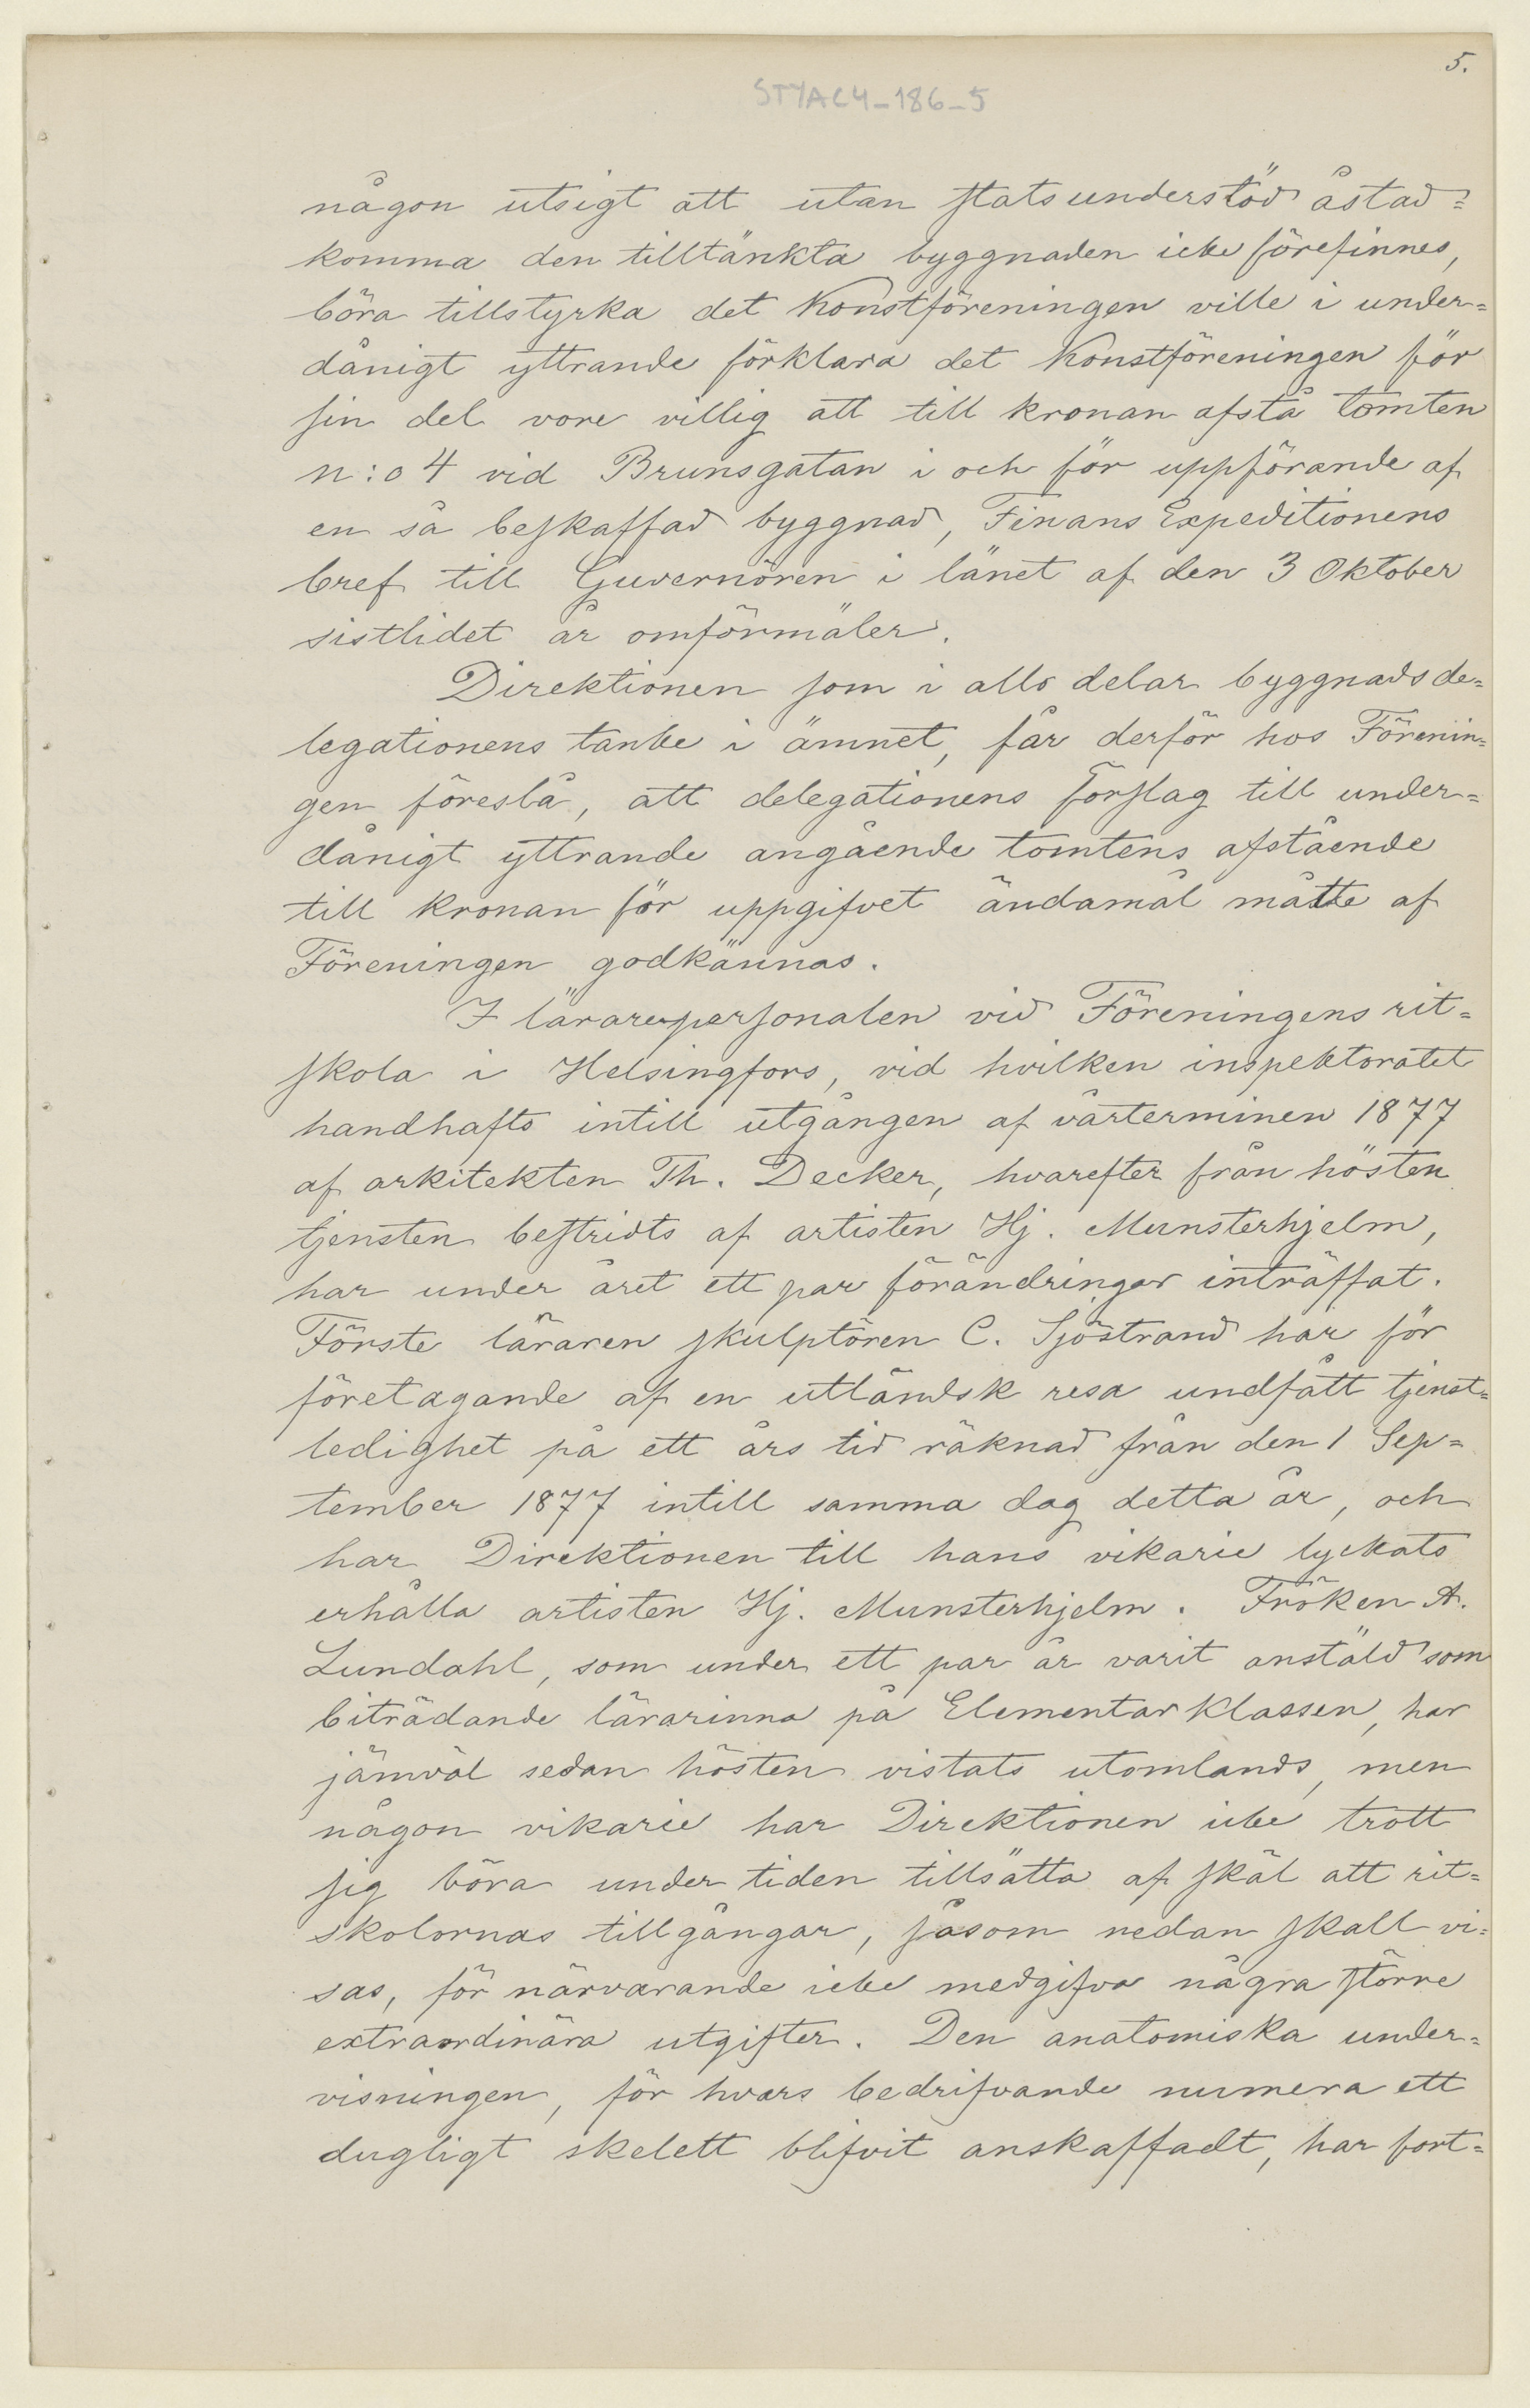 5.
STYAC4-186-5
någon utsigt att utan statsunderstöd åstad=
komma den tilltänkta byggnaden icke förefinnes,
böra tillstyrka det Konstföreningen ville i under=
dånigt yttrande förklara det Konstföreningen för
sin del vore villig att till kronan afstå tomten
n:o 4 vid Brunsgatan i och för uppförande af
en så beskaffad byggnad, Finans Expeditionens
bref till Guvernören i länet af den 3 Oktober
sistlidet år omförmäler.
Direktionen som i allo delar byggnadsde=
legationens tanke i ämnet, får derför hos Förenin=
gen föreslå, att delegationens förslag till under=
dånigt yttrande angående tomtens afstående
till kronan för uppgifvet ändamål måtte af
Föreningen godkännas.
I lärarepersonalen vid Föreningens rit=
skola i Helsingfors, vid hvilken inspektoratet
handhafts intill utgången af vårterminen 1877
af arkitekten Th. Decker, hvarefter från hösten
tjensten bestridts af artisten Hj. Munsterhjelm,
har under året ett par förändringar inträffat.
Förste läraren skulptören C. Sjöstrand har för
företagande af en utländsk resa undfått tjenst=
ledighet på ett års tid räknad från den 1 Sep=
tember 1877 intill samma dag detta år, och
har Direktionen till hans vikarie lyckats
erhålla artisten Hj. Munsterhjelm. Fröken A.
Lundahl, som under ett par år varit anstäld som
biträdande lärarinna på Elementarklassen, har
jämväl sedan hösten vistats utomlands, men
någon vikarie har Direktionen icke trott
sig böra under tiden tillsätta af skäl att rit=
skolornas tillgångar, såsom nedan skall vi=
sas, för närvarande icke medgifva några större
extraordinära utgifter. Den anatomiska under=
visningen, för hvars bedrifvande numera ett
dugligt skelett blifvit anskaffadt, har fort=